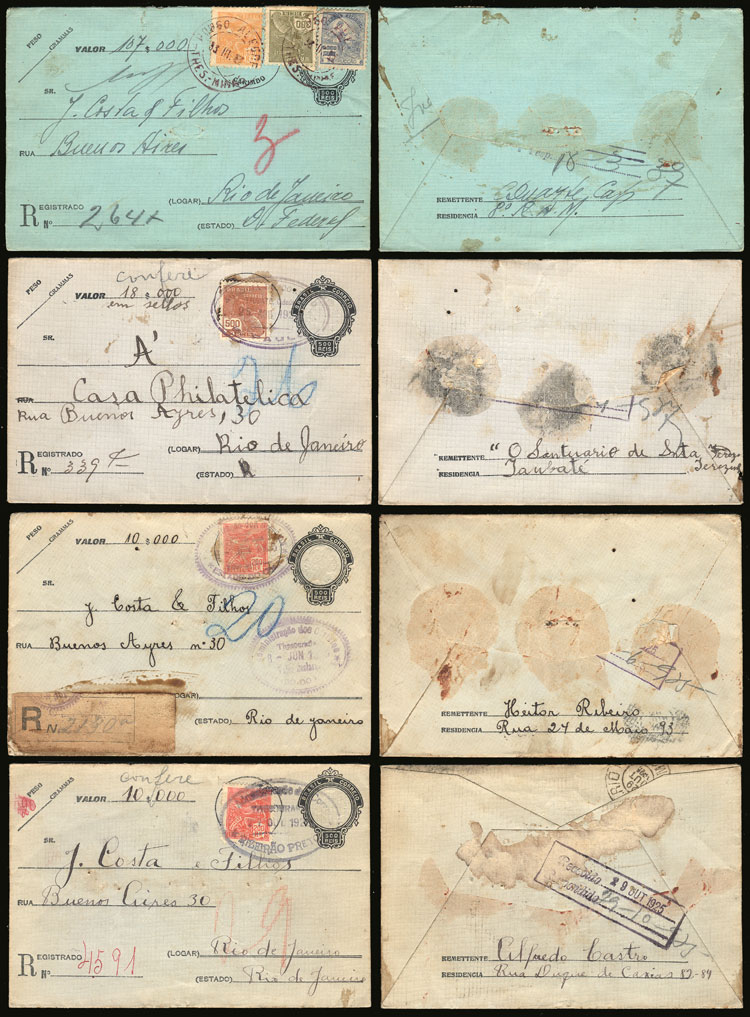 PESO
GRAMMAS
VALOR 107$000
PORSO ALEGRE
THES. MINAS
SR.
J. Costa & Filhos
RUA Buenos Aires
3
(LOGAR) Rio de Janeiro
REGISTRADO
Nº 264
(ESTADO) D. Federal
18
REMETTENTE
RESIDENCIA 8º R.A.M.
PESO
GRAMMAS
confere
VALOR 18$000
em sellos
500
BRASIL CORREIO
500
REIS
SR.
A'
RUA Casa Philatelica
Rua Buenos Ayres, 30
(LOGAR) Rio de Janeiro
REGISTRADO
Nº 339
(ESTADO)
REMETTENTE "O Santuario de Snta
RESIDENCIA Taubaté
PESO
GRAMMAS
VALOR 10$000
BRASIL CORREIO
500
REIS
SR.
J. Costa & Filhos
20
RUA Buenos Ayres nº 30
JUN
(LOGAR)
R N.
(ESTADO) Rio de janeiro
REMETTENTE Heitor Ribeiro
RESIDENCIA Rua 24 de Maio 93
PESO
GRAMMAS
confere
VALOR 10$000
THESOURARIA
RIBEIRÃO PRETO
BRASIL CORREIO
500
REIS
SR.
J. Costa e Filhos
RUA Buenos Aires 30
(LOGAR) Rio de Janeiro
REGISTRADO
Nº 4591
(ESTADO) Rio de Janeiro
Recebido 29 OUT 1925
Expedido 29-10-
REMETTENTE Alfredo Castro
RESIDENCIA Rua Duque de Caxias 82-84